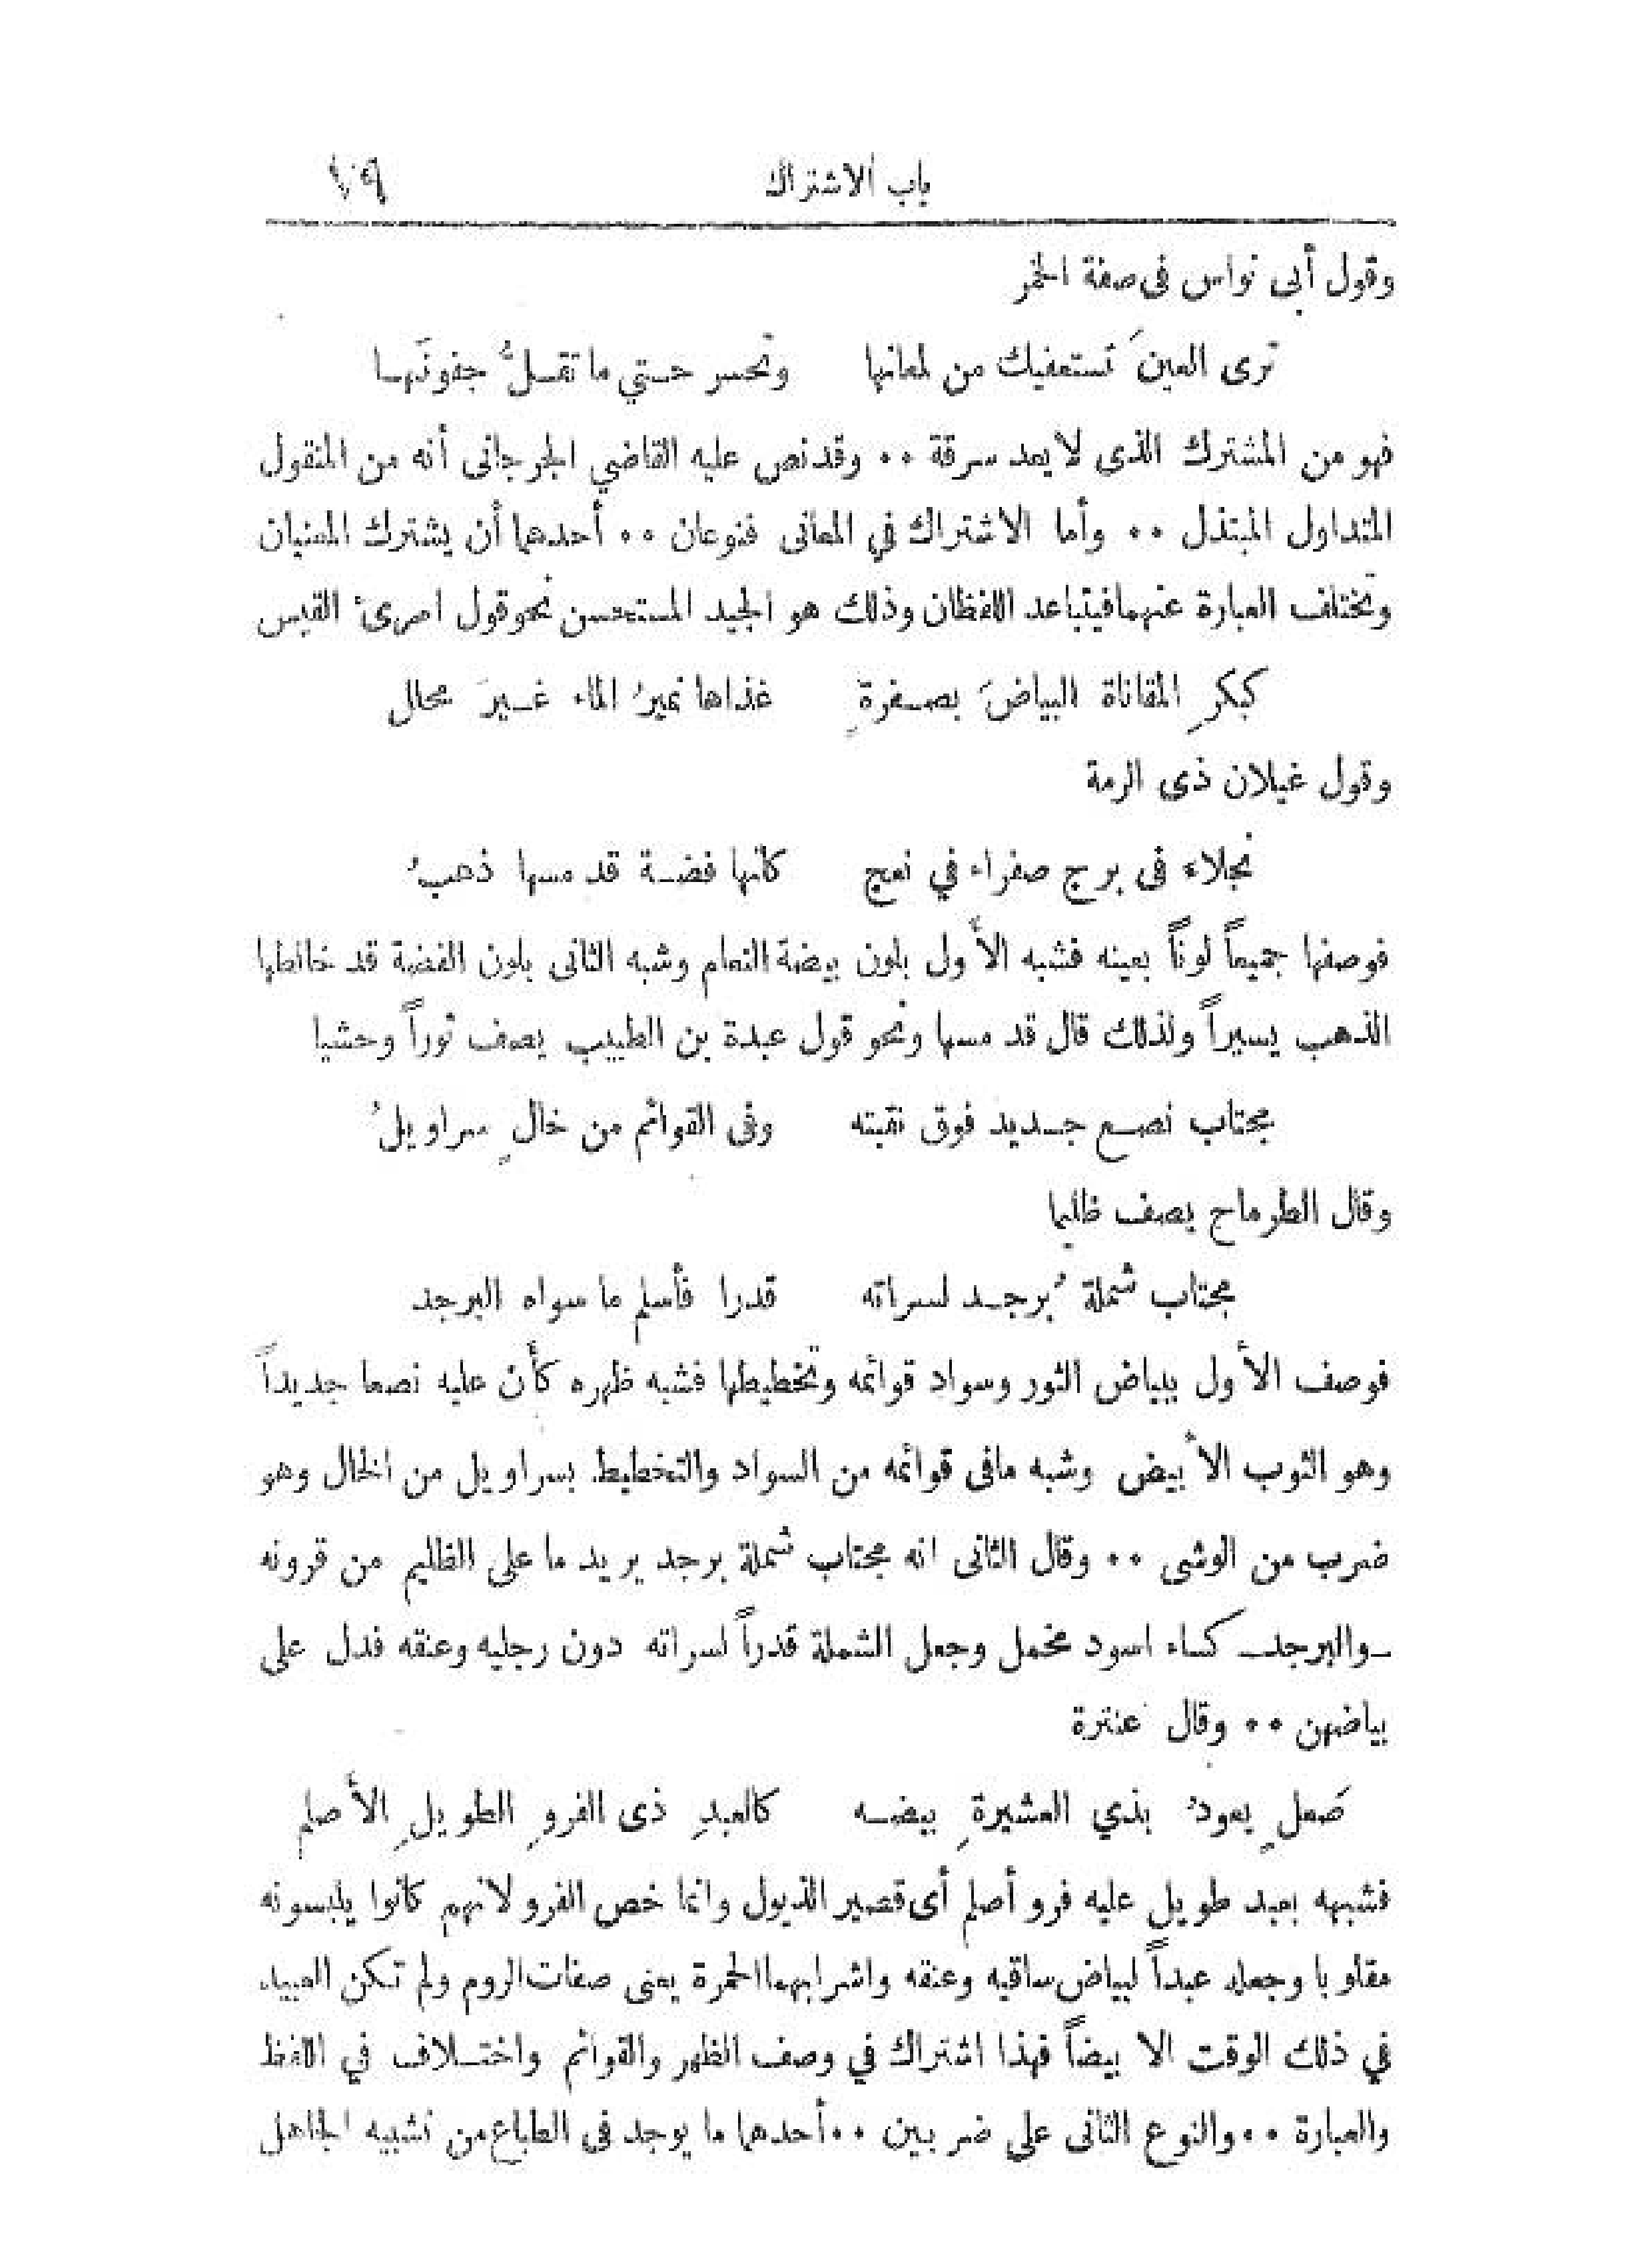 باب الاشتراك
وقول أبى نواس فى صفة الخمر
ترى العينَ تستعفيك من لمعانها وتحسر حتي ما تقلُّ جفونَها
فهو من المشترك الذى لا يعد سرقة ٠٠ وقد نص عليه القاضي الجرجانى أنه من المنقول
المتداول المبتذل ٠٠ وأما الاشتراك في المعانى فنوعان ٠٠ أحدهما أن يشترك المعنيان
وتختلف العبارة عنهما فيتباعد اللفظان وذلك هو الجيد المستحسن نحو قول امرئ القيس
كبكرِ المقاناة البياضَ بصفرةٍ غذاها نميرُ الماء غيرَ محلل
وقول غيلان ذى الرمة
نجلاء فى برج صفراء في نعج كأنها فضة قد مسها ذهبُ
فوصفها جميعاً لوناً بعينه فشبه الأول بلون بيضة النعام وشبه الثانى بلون الفضة قد خالطها
الذهب يسيراً ولذلك قال قد مسها ونحو قول عبدة بن الطبيب يصف ثوراً وحشيا
مجتاب نصع جديد فوق نقبته وفى القوائم من خالٍ سراويلُ
وقال الطرماح يصف ظليما
مجتاب شملة بُرجد لسراته قدرا فأسلم ما سواه البرجد
فوصف الأول بياض الثور وسواد قوائمه وتخطيطها فشبه ظهره كأن عليه نصعا جديداً
وهو الثوب الأبيض وشبه مافى قوائمه من السواد والتخطيط بسراويل من الخال وهو
ضرب من الوشى ٠٠ وقال الثانى انه مجتاب شملة برجد يريد ما على الظليم من قرونه
ـ والبرجد ـ كساء اسود مخمل وجعل الشملة قدراً لسراته دون رجليه وعنقه فدل على
بياضهن ٠٠ وقال عنترة
صَعلٍ يعودُ بذي العشيرةِ بيضه كالعبدِ ذى الفروِ الطويلِ الأصلم
فشبهه بعبد طويل عليه فرو أصلم أى قصير الذيول وانما خص الفرو لانهم كانوا يلبسونه
مقلوبا وجعله عبداً لبياض ساقيه وعنقه واشرابهما الحمرة يعنى صفات الروم ولم تكن العبيد
في ذلك الوقت الا بيضاً فهذا اشتراك في وصف الظهر والقوائم واختلاف في اللفظ
والعبارة ٠٠ والنوع الثانى على ضربين ٠٠ أحدهما ما يوجد فى الطباع من تشبيه الجاهل